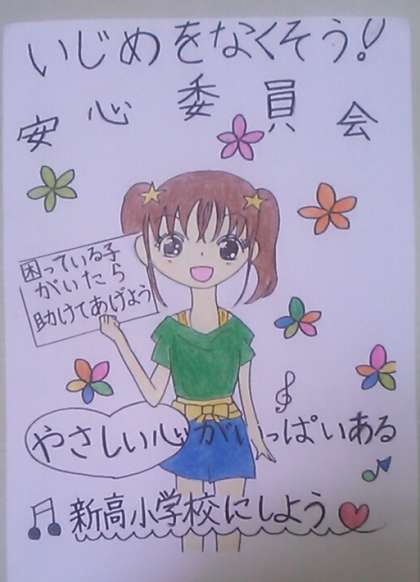 いじめをなくそう!
安心委員会
困っている子
がいたら
助けてあげよう
やさしい心がいっぱいある
新高小学校にしよう